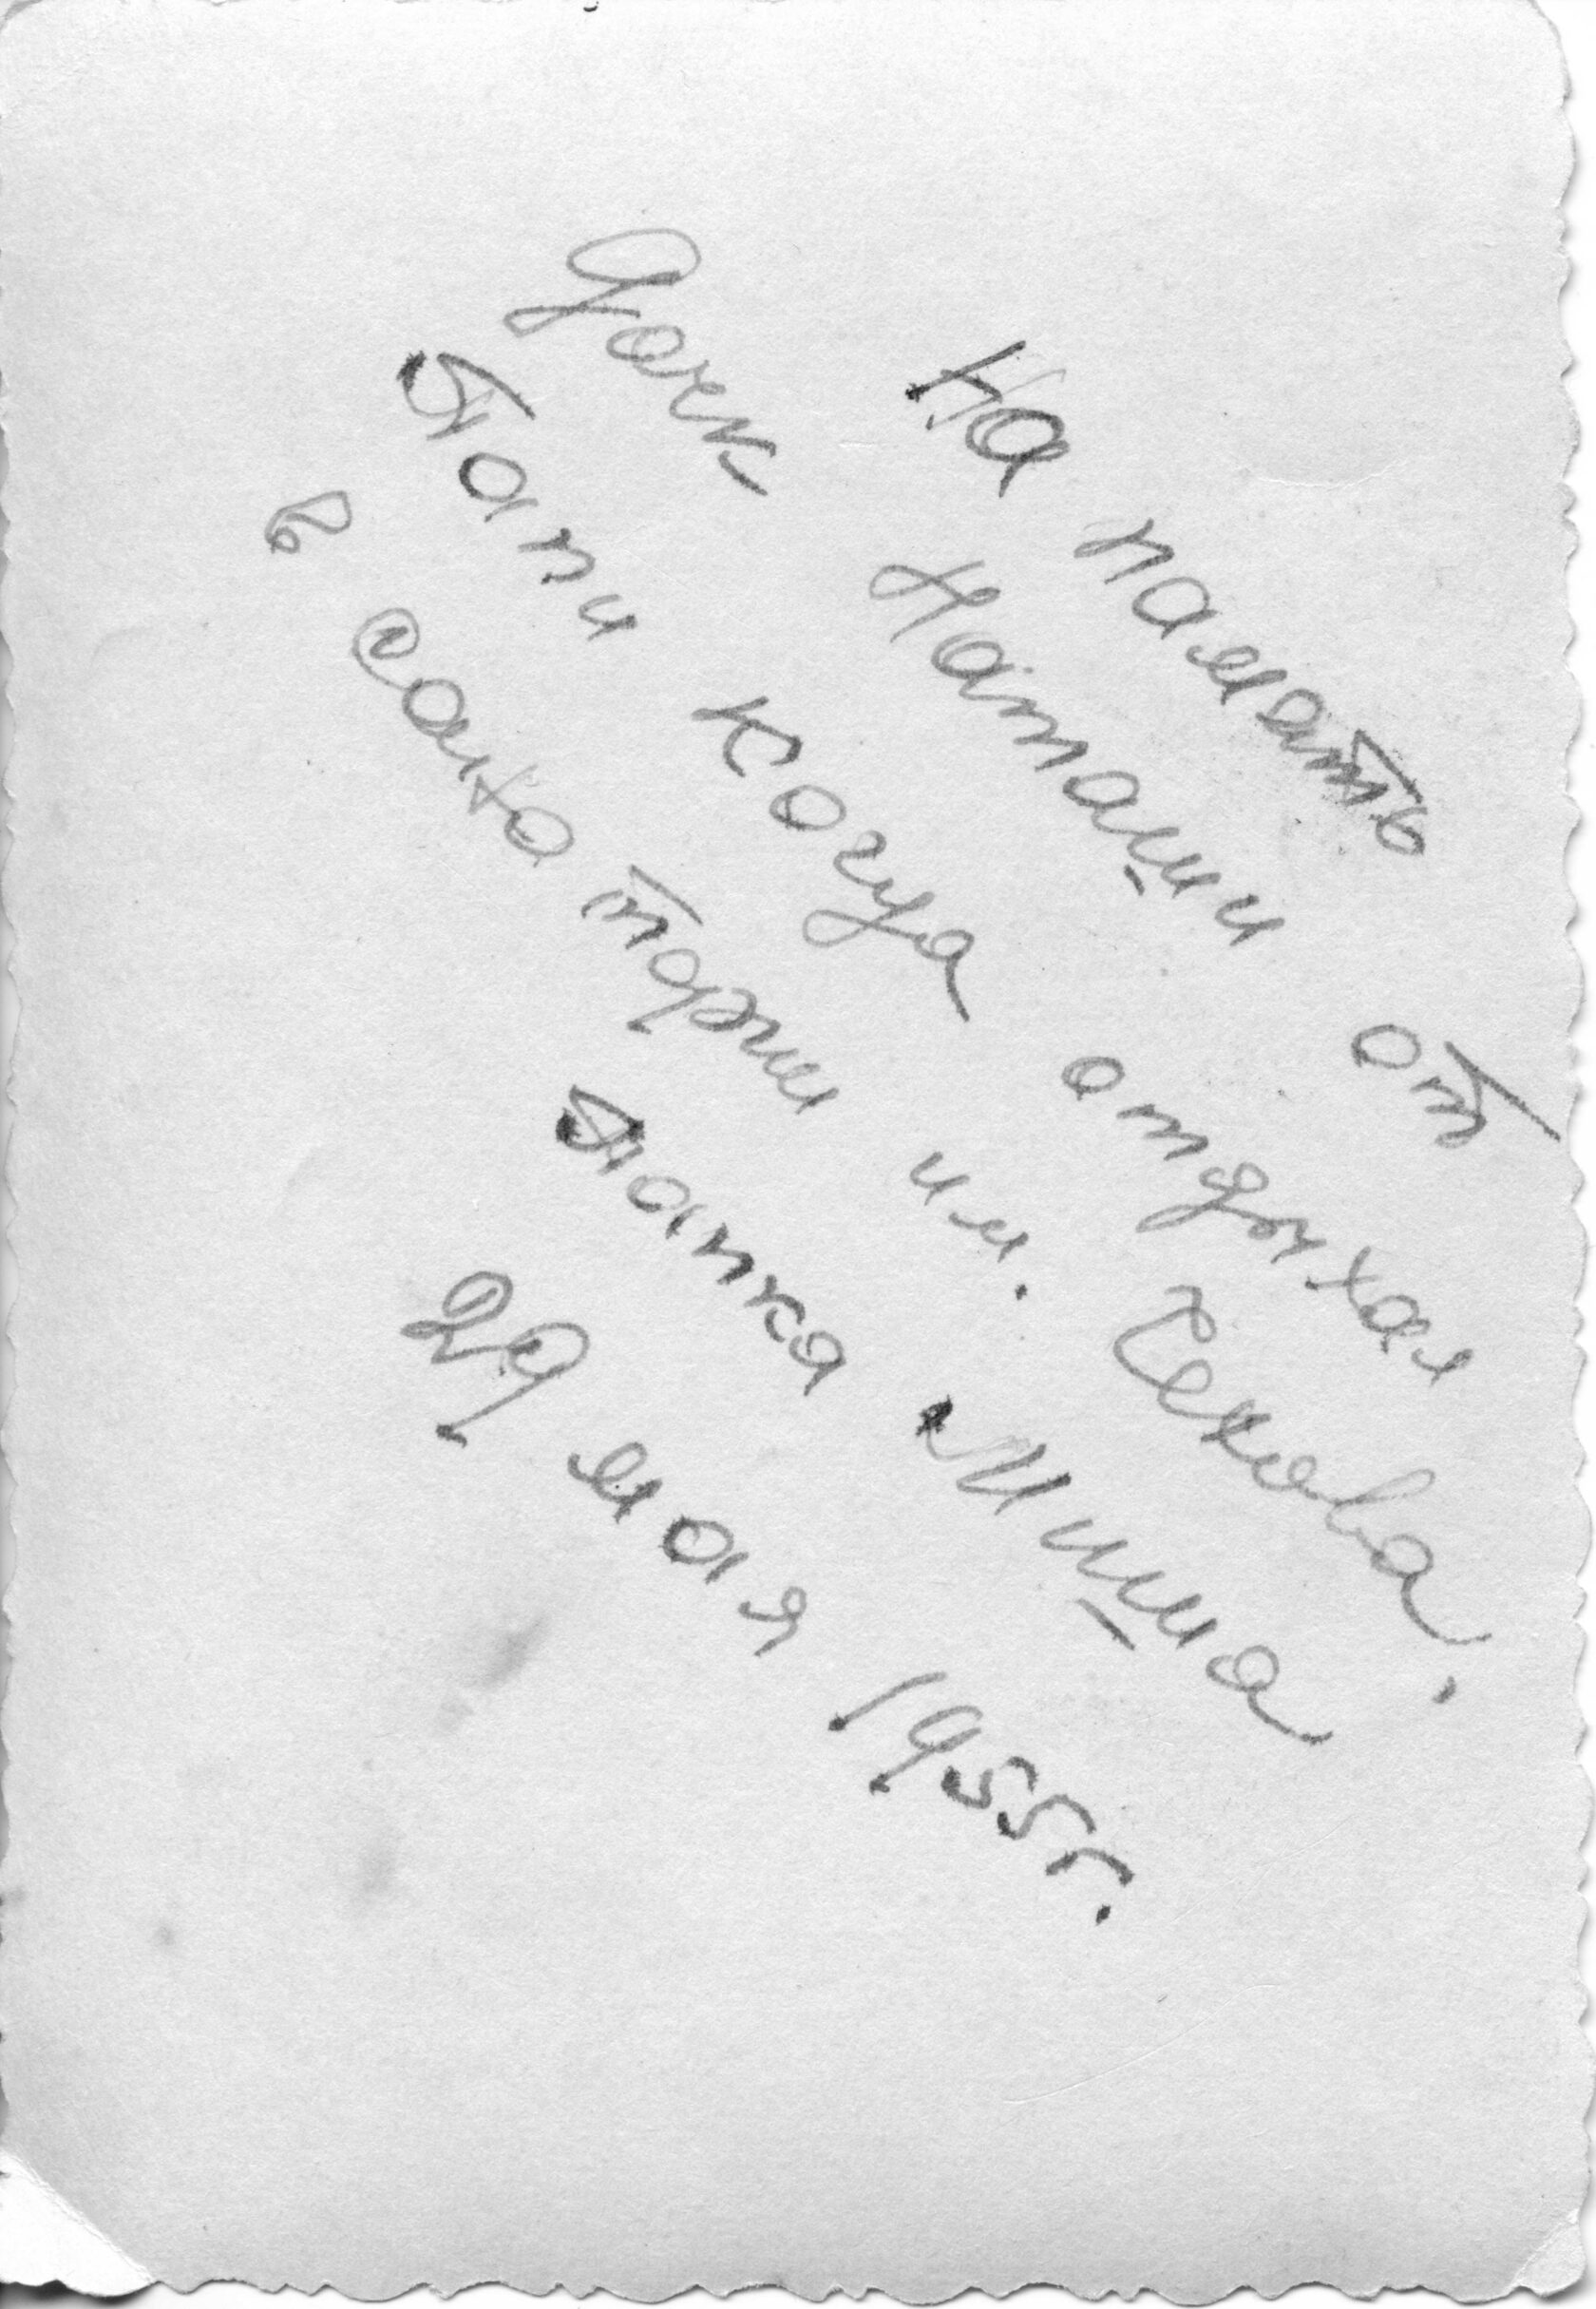 На памать
Дочк Наташи от
Папи когда отдыхал
в санатории им. Чехова.
Папка Миша
29 мая 1955г.